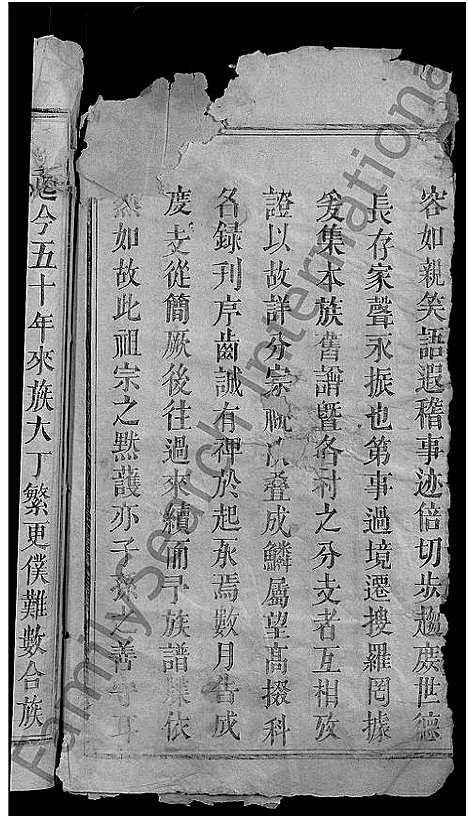 容如親笑語遐稽事迹倍切步趨庶世德
長存家聲永振也第事過境遷搜羅罔據
爰集本族舊譜暨各村之分支者互相攷
證以故詳分宗疊成鱗屬望高掇科
名録刊序齒誠有裨於起承焉數月告成
度支從簡厥後往過來續而予族譜依
然如故此祖宗之默護亦子孫之善守耳
迄今五十年來族大丁繁更僕難數合族
FamilySearch International